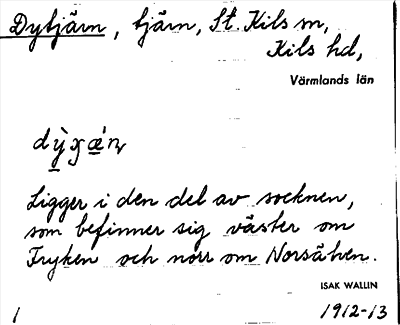 Dytjärn, tjärn, St. Kils sn,
Kils hd,
Värmlands län
Ligger i den del av socknen,
som befinner sig väster om
Fryken och norr om Norsälven.
ISAK WALLIN
1 1912-13